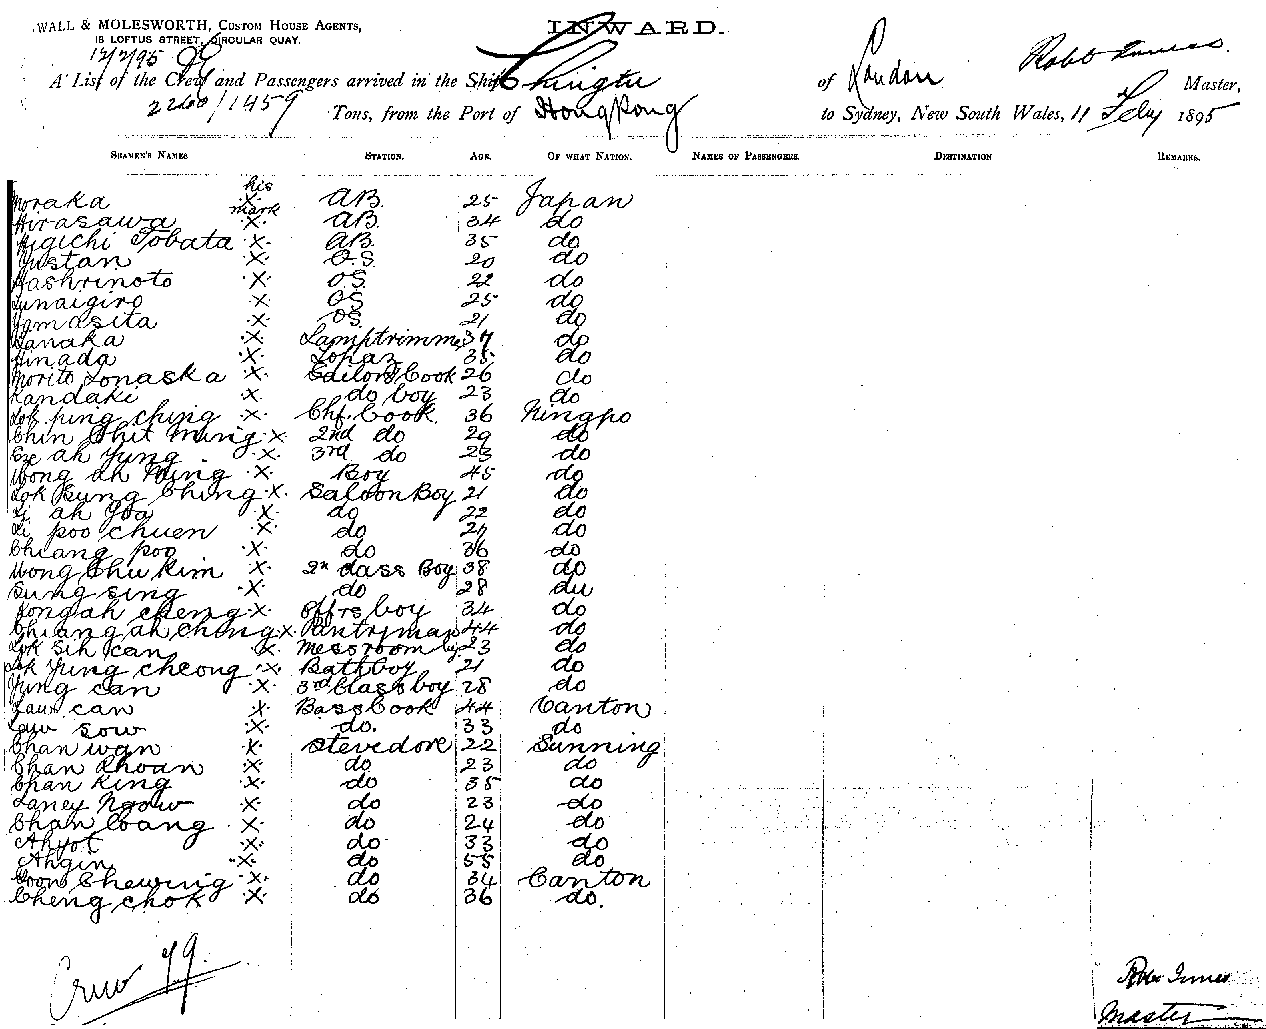 WALL & MOLESWORTH, CUSTOM HOUSE AGENTS,
18 LOFTUS STREET, CIRCULAR QUAY.
INWARD.
12/2/95
A List of the Crew and Passengers arrived in the Ship Chingtu of London Robb Innes Master,
2260/1459 Tons, from the Port of Hong Kong to Sydney, New South Wales, 11 Feby 1895
SEAMEN'S NAMES STATION. AGE. OF WHAT NATION. NAMES OF PASSENGERS. DESTINATION REMARKS.
his
Moraka X AB. 25 Japan
mark
Hirasawa X AB. 34 do
Kigichi Tobata X AB. 35 do
Yustan X O.S. 20 do
Hashrinoto X OS. 22 do
Sunaigiro X OS 25 do
Yamasita X OS. 21 do
Tanaka X Lamptrimmer 37 do
Hinada X 35 do
Morito Lonaska X Sailors Cook 26 do
Kandaki X do boy 23 do
Lok ping ching X Chf. Cook. 36 Ningpo
Chin Shit ming X 2nd do 29 do
ah Yung X 3rd do 23 do
Wong ah Ming X Boy 45 do
Lok Bung Ching X Saloon Boy 21 do
Li ah X do 22 do
Li poo chuen X do 24 do
Chiang poo X do 36 do
Wong Chu Kim X 2n class Boy 38 do
Sung sing X do 28 do
Kong ah cheng X Offrs boy 34 do
Chiang ah ching X Pantryman 44 do
Lok Sih can X Messroom by 23 do
Lok Yung cheong X Bathboy 21 do
Yung can X 3rd Class boy 28 do
Laur can X Bass Cook 44 Canton
Law sow X do. 33 do
Chan wan X Stevedore 22 Sunning
Chan Khoan X do 23 do
Chan King X do 35 do
Laney Ngow X do 23 do
Chan Coang X do 24 do
Ahyot X do 33 do
Ahgin X do 55 do
Chewing X do 34 Canton
Cheng chok X do 36 do.
Crew 79
Robb Innes
Master